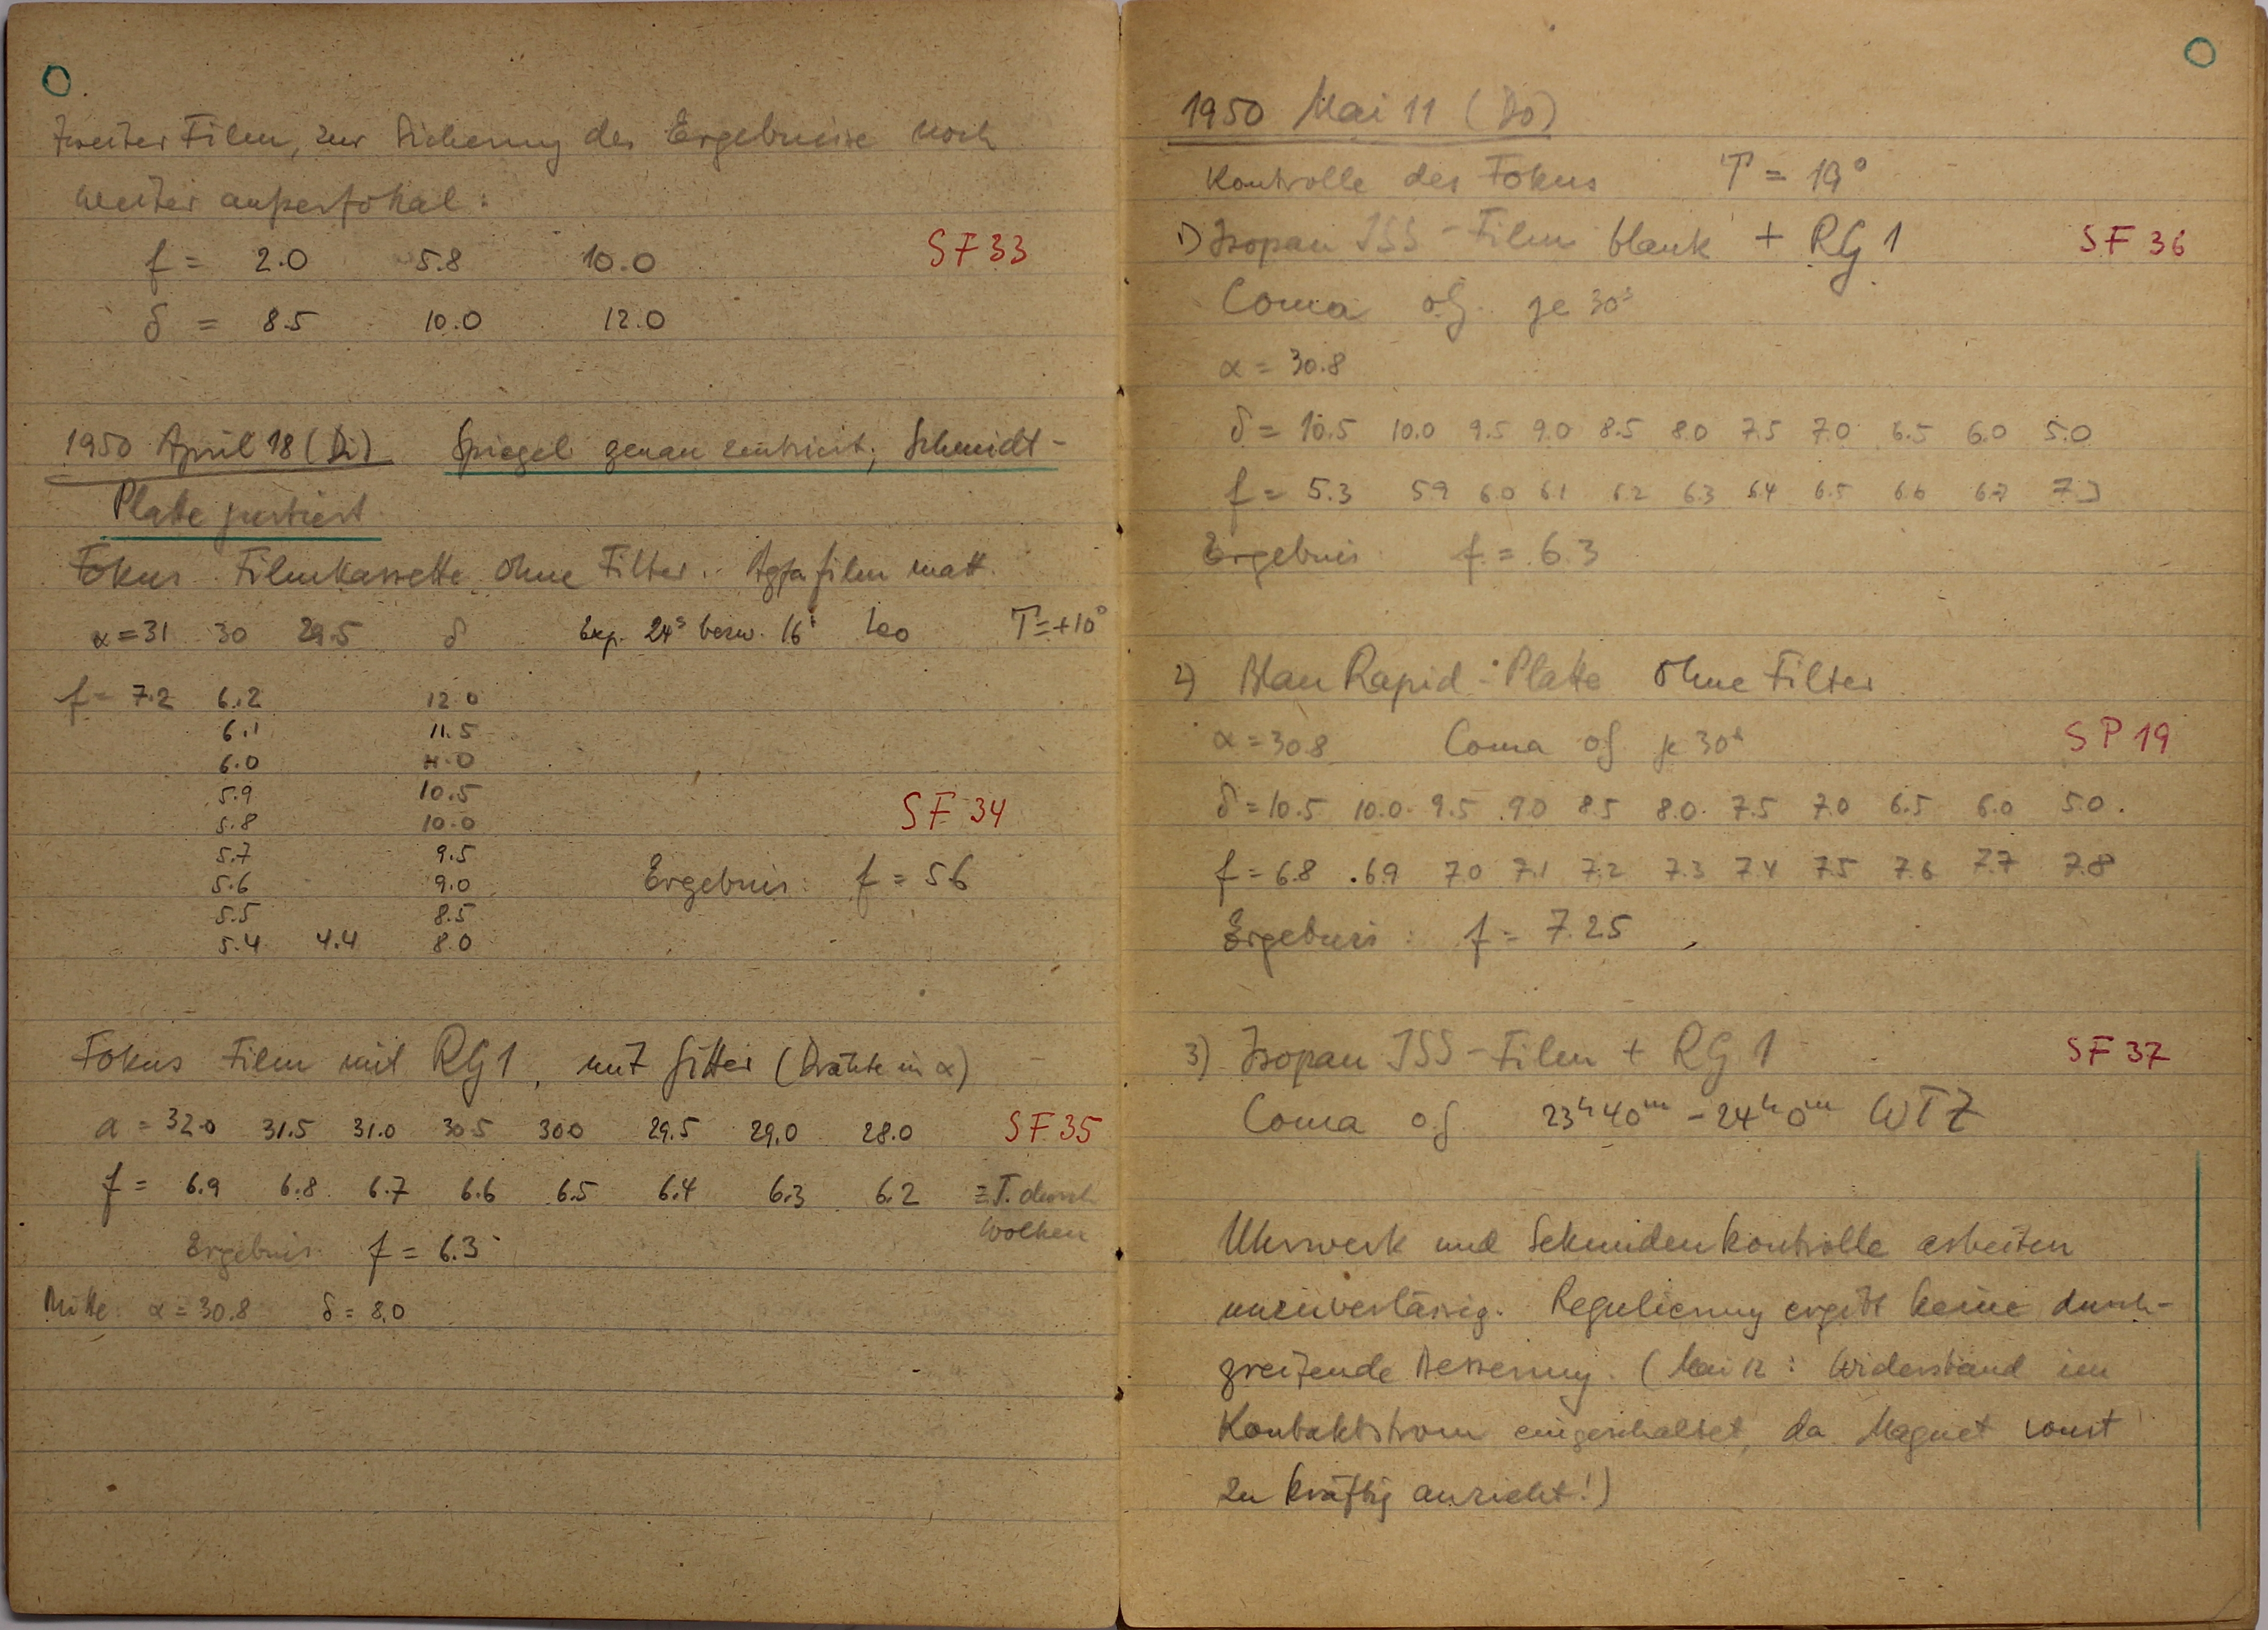 Zweiter Film, zur Sicherung der Ergebnisse noch
weiter außerfokal:
f = 2.0 5.8 10.0 SF 33
δ = 8.5 10.0 12.0
1950 April 18 (Di) Spiegel genau zentriert, Schmidt-
Platte justiert
Fokus Filmkassette ohne Filter. Agfa film matt.
α = 31 30 29.5 δ Exp. 24s bezw. 16s Leo T = +10°
f = 7.2 6.2 12.0
6.1 11.5
6.0 11.0
5.9 10.5
5.8 10.0 SF 34
5.7 9.5
5.6 9.0 Ergebnis: f = 5.6
5.5 8.5
5.4 4.4 8.0
Fokus Film mit RG1, mit Gitter (Drähte in α)
α = 32.0 31.5 31.0 30.5 30.0 29.5 29.0 28.0 SF 35
f = 6.9 6.8 6.7 6.6 6.5 6.4 6.3 6.2 z.T. durch
Wolken
Ergebnis f = 6.3
Mitte: α = 30.8 δ = 8.0
1950 Mai 11 (Do)
Kontrolle des Fokus T = 19°
1) Isopan ISS-Film blank + RG1 SF 36
Coma of je 30s
α = 30.8
δ = 10.5 10.0 9.5 9.0 8.5 8.0 7.5 7.0 6.5 6.0 5.0
f = 5.3 5.9 6.0 6.1 6.2 6.3 6.4 6.5 6.6 6.7 7.3
Ergebnis f = 6.3
2) Blau Rapid-Platte ohne Filter
α = 30.8 Coma of je 30s SP 19
δ = 10.5 10.0 9.5 9.0 8.5 8.0 7.5 7.0 6.5 6.0 5.0
f = 6.8 6.9 7.0 7.1 7.2 7.3 7.4 7.5 7.6 7.7 7.8
Ergebnis: f = 7.25
3) Isopan ISS-Film + RG1 SF 37
Coma of 23h40m - 24h0m WTZ
Uhrwerk und Sekundenkontrolle arbeiten
unzuverlässig. Regulierung ergibt keine durch-
greifende Besserung. (Mai 12: Widerstand im
Kontaktstrom eingeschaltet, da Magnet sonst
zu kräftig anzieht!)